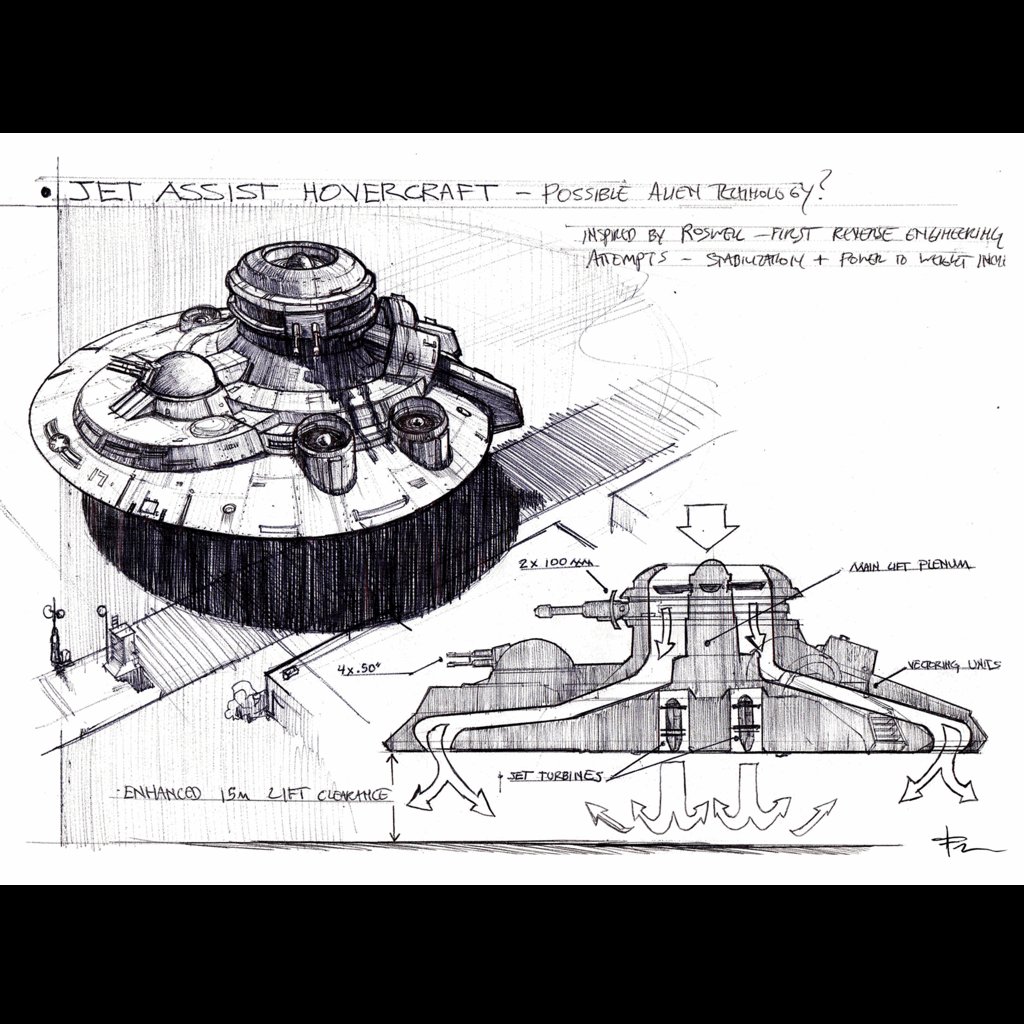 • JET ASSIST HOVERCRAFT – POSSIBLE ALIEN TECHNOLOGY?
INSPIRED BY ROSWELL – FIRST REVERSE ENGINEERING
ATTEMPTS – STABILIZATION + POWER TO WEIGHT
2 x 100mm
MAIN LIFT PLENUM
4x.50"
VECTORING UNITS
JET TURBINES
ENHANCED 15M LIFT CLEARANCE